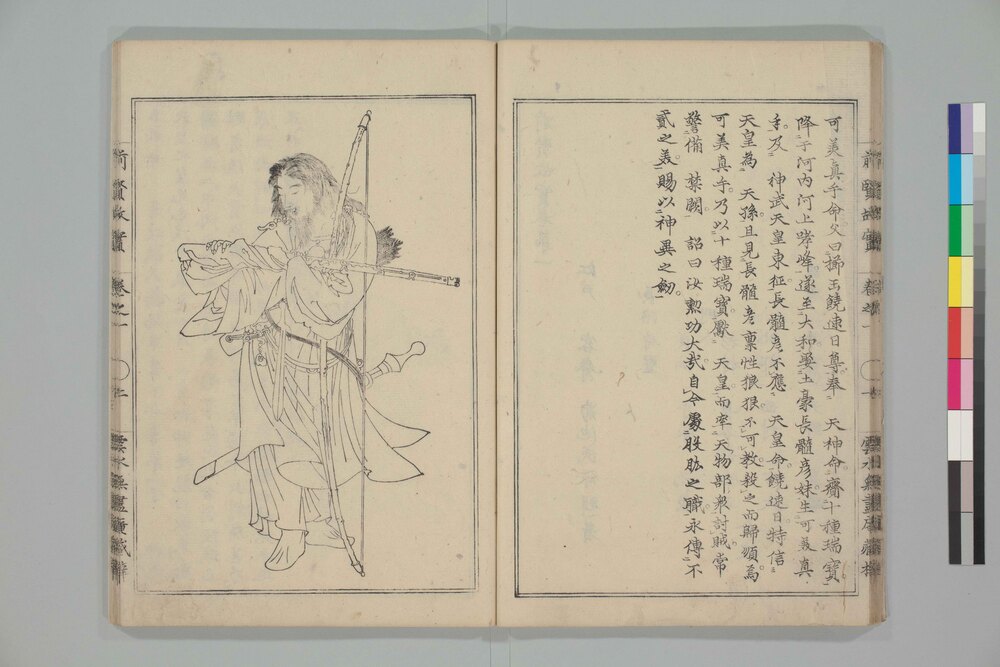 可美真手命父曰櫛玉饒速日尊奉天神命齎十種瑞寶
降于河内河上哮峰遂至大和娶土豪長髓彦妹生可美真
手及神武天皇東征長髓彦不應天皇命饒速日特信
天皇為天孫且見長髓彦稟性狼狠不可教殺之而歸順焉
可美真手乃以十種瑞寶獻天皇而率天物部衆討賊常
警備禁闕詔曰汝勲功大哉自今屬股肱之職永傳不
貳之美賜以神異之劒
前賢故實
卷之一
雲水無盡庵藏梓
前賢故實
卷之一
雲水無盡庵藏梓